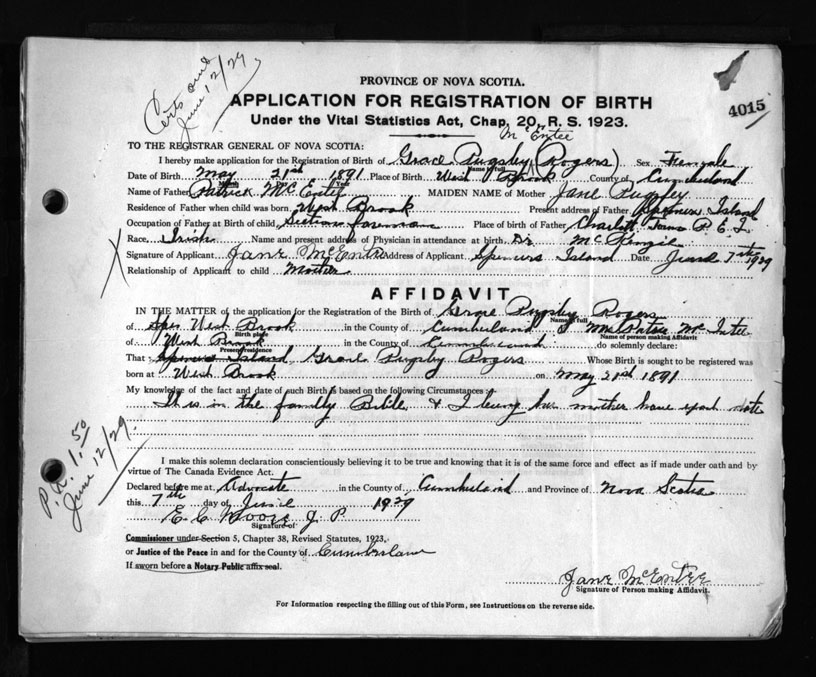 Certs and
June 12/29
PROVINCE OF NOVA SCOTIA.
4015
APPLICATION FOR REGISTRATION OF BIRTH
Under the Vital Statistics Act, Chap. 20, R. S. 1923.
McEntee
TO THE REGISTRAR GENERAL OF NOVA SCOTIA:
I hereby make application for the Registration of Birth of Grace Pugsley (Rogers) Sex Female
Name in full
Date of Birth May 21st 1891 Place of Birth West Brook County of Cumberland
Month Year
Name of Father Patrick McEntee MAIDEN NAME of Mother Jane Pugsley
Residence of Father when child was born West Brook Present address of Father Spencers Island
Occupation of Father at Birth of child Section foreman Place of birth of Father Charlotte Town P. E. I.
Race Irish Name and present address of Physician in attendance at birth Dr McKenzie
Signature of Applicant Jane McEntee Address of Applicant Spencers Island Date June 7th 1929
Relationship of Applicant to child Mother
AFFIDAVIT
IN THE MATTER of the application for the Registration of the Birth of Grace Pugsley Rogers
Name in full
of West Brook in the County of Cumberland I Mrs McEntee
Birth place Name of person making Affidavit
of West Brook in the County of Cumberland do solemnly declare:
Present residence
That Spencers Island Grace Pugsley Rogers Whose Birth is sought to be registered was
born at West Brook on May 21st 1891
My knowledge of the fact and date of such Birth is based on the following Circumstances:
It is in the family Bible & I being her mother have exact date
P.R. 1.50
June 12/29.
I make this solemn declaration conscientiously believing it to be true and knowing that it is of the same force and effect as if made under oath and by
virtue of The Canada Evidence Act.
Declared before me at Advocate in the County of Cumberland and Province of Nova Scotia
this 7th day of June 1929
E. C. Moore J P
Signature of
Commissioner under Section 5, Chapter 38, Revised Statutes, 1923,
or Justice of the Peace in and for the County of Cumberland
If sworn before a Notary Public affix seal.
Jane McEntee
Signature of Person making Affidavit.
For Information respecting the filling out of this Form, see Instructions on the reverse side.